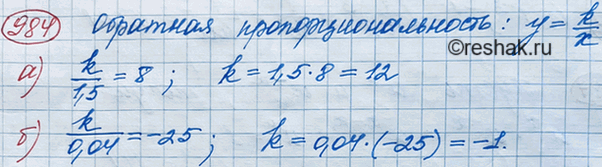 984 Обратная пропорциональность: y = k/x
©reshak.ru
а) k/1,5 = 8; k = 1,5·8 = 12
б) k/0,04 = -25; k = 0,04·(-25) = -1.